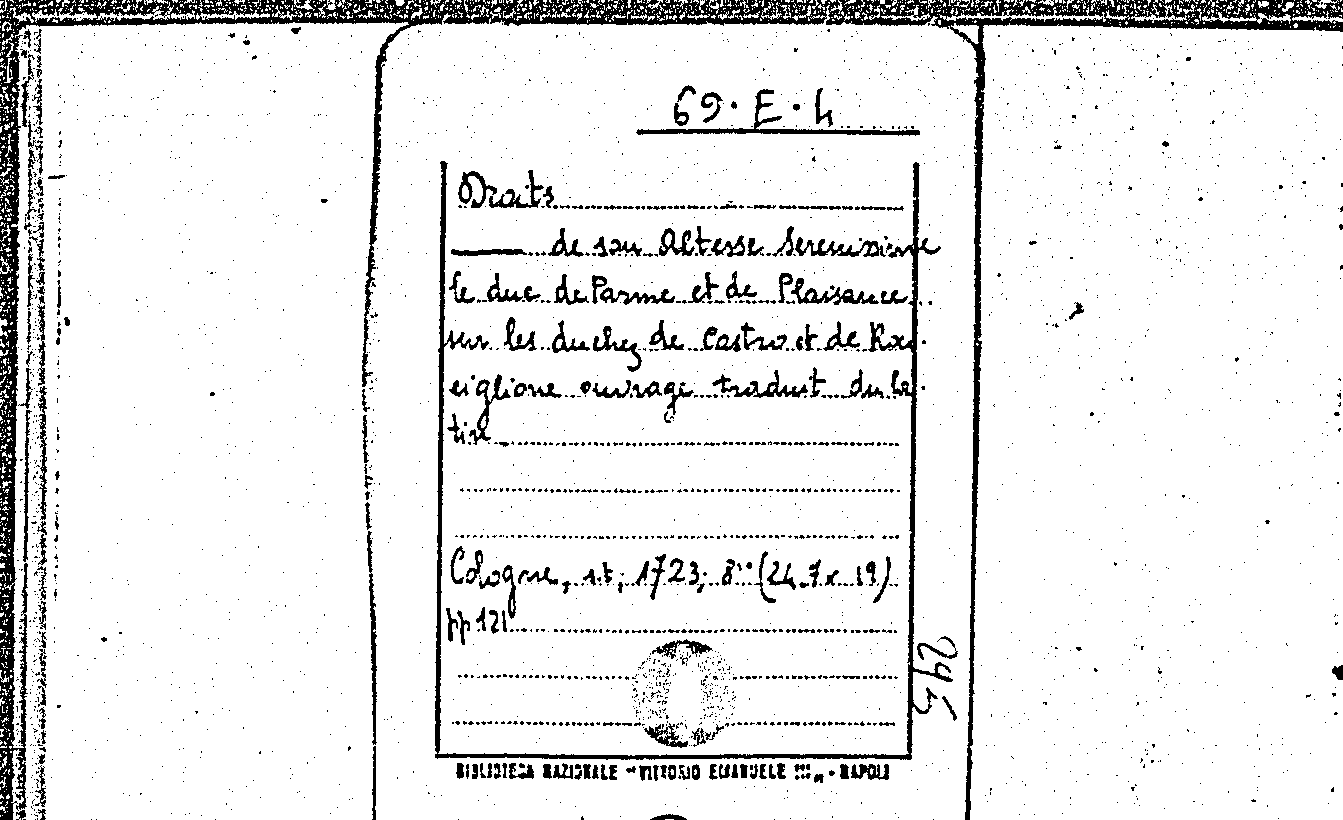 69. E. 4
Droits
—— de son Altesse Serenissime
le duc de Parme et de Plaisance
sur les duchez de Castro et de Ron-
ciglione ouvrage traduit du la-
tin
Cologne, s.t; 1723; 8° (24.7 x 19)
pp 121
245
BIBLIOTECA NAZIONALE "VITTORIO EMANUELE III" - NAPOLI